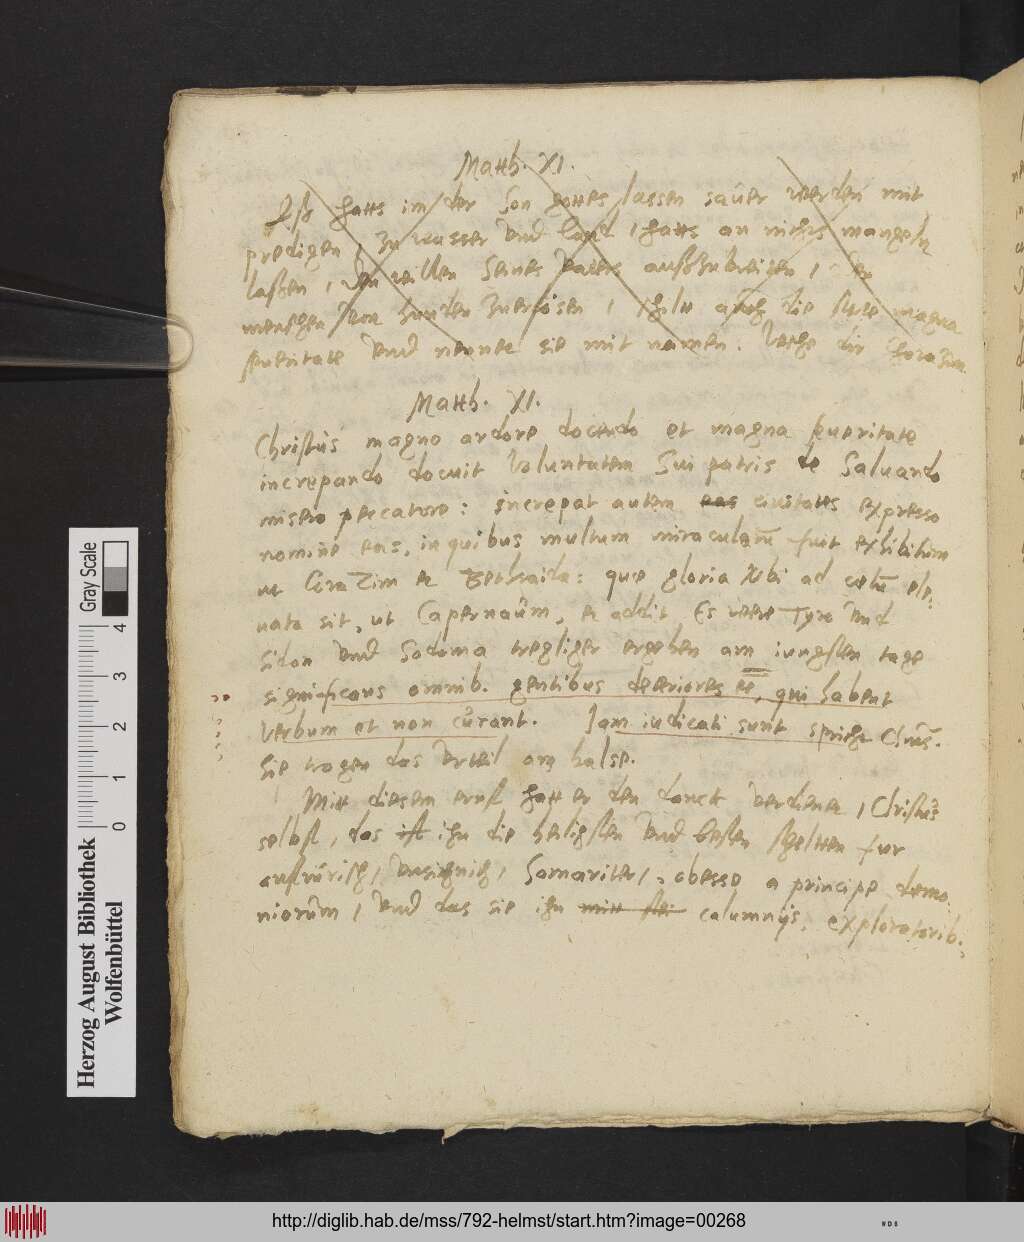 Matth. XI.
Eß hatts im der Son gottes lassen sauer werden mit
predigen, zu wasser und land, hatts an nichts mangeln
laßen, den willen Seines Vaters außzubreiten, er
menschen von sunden zuerlösen, schilt auch die stete magna
severitate und nennet sie mit namen. Vehe dir Chorazim.
Matth. XI.
Christus magno ardore docendo et magna severitate
increpando docuit voluntatem Sui patris de Salvando
misero peccatore: increpat autem eas civitates expresso
nomine eas, in quibus multum miraculorũ fuit exhibitum
ut Corazim et Bethsaida: que gloria tibi ad celũ ele,
vata sit, ut Capernaum, et addit Es were Tyro und
Sidon und Sodoma tregliger ergehen am iungsten tage
significans omnib. gentibus deteriores eē, qui habent
Verbum et non curant. Jam iudicati sunt spricht Chrūs.
Sie tragen das Urteil am halse.
Mitt diesem ernst hatt er den danck verdienet, Christus
selbst, das ist ihn die heiligsten und besten schelten fur
aufrurisch, unsignich, Samariter, obesso a principe demo,
niorum, und das sie ihn mitt calumnijs, exploratorib.
Herzog August Bibliothek
Wolfenbüttel
Gray Scale
0 1 2 3 4
http://diglib.hab.de/mss/792-helmst/start.htm?image=00268
WDB